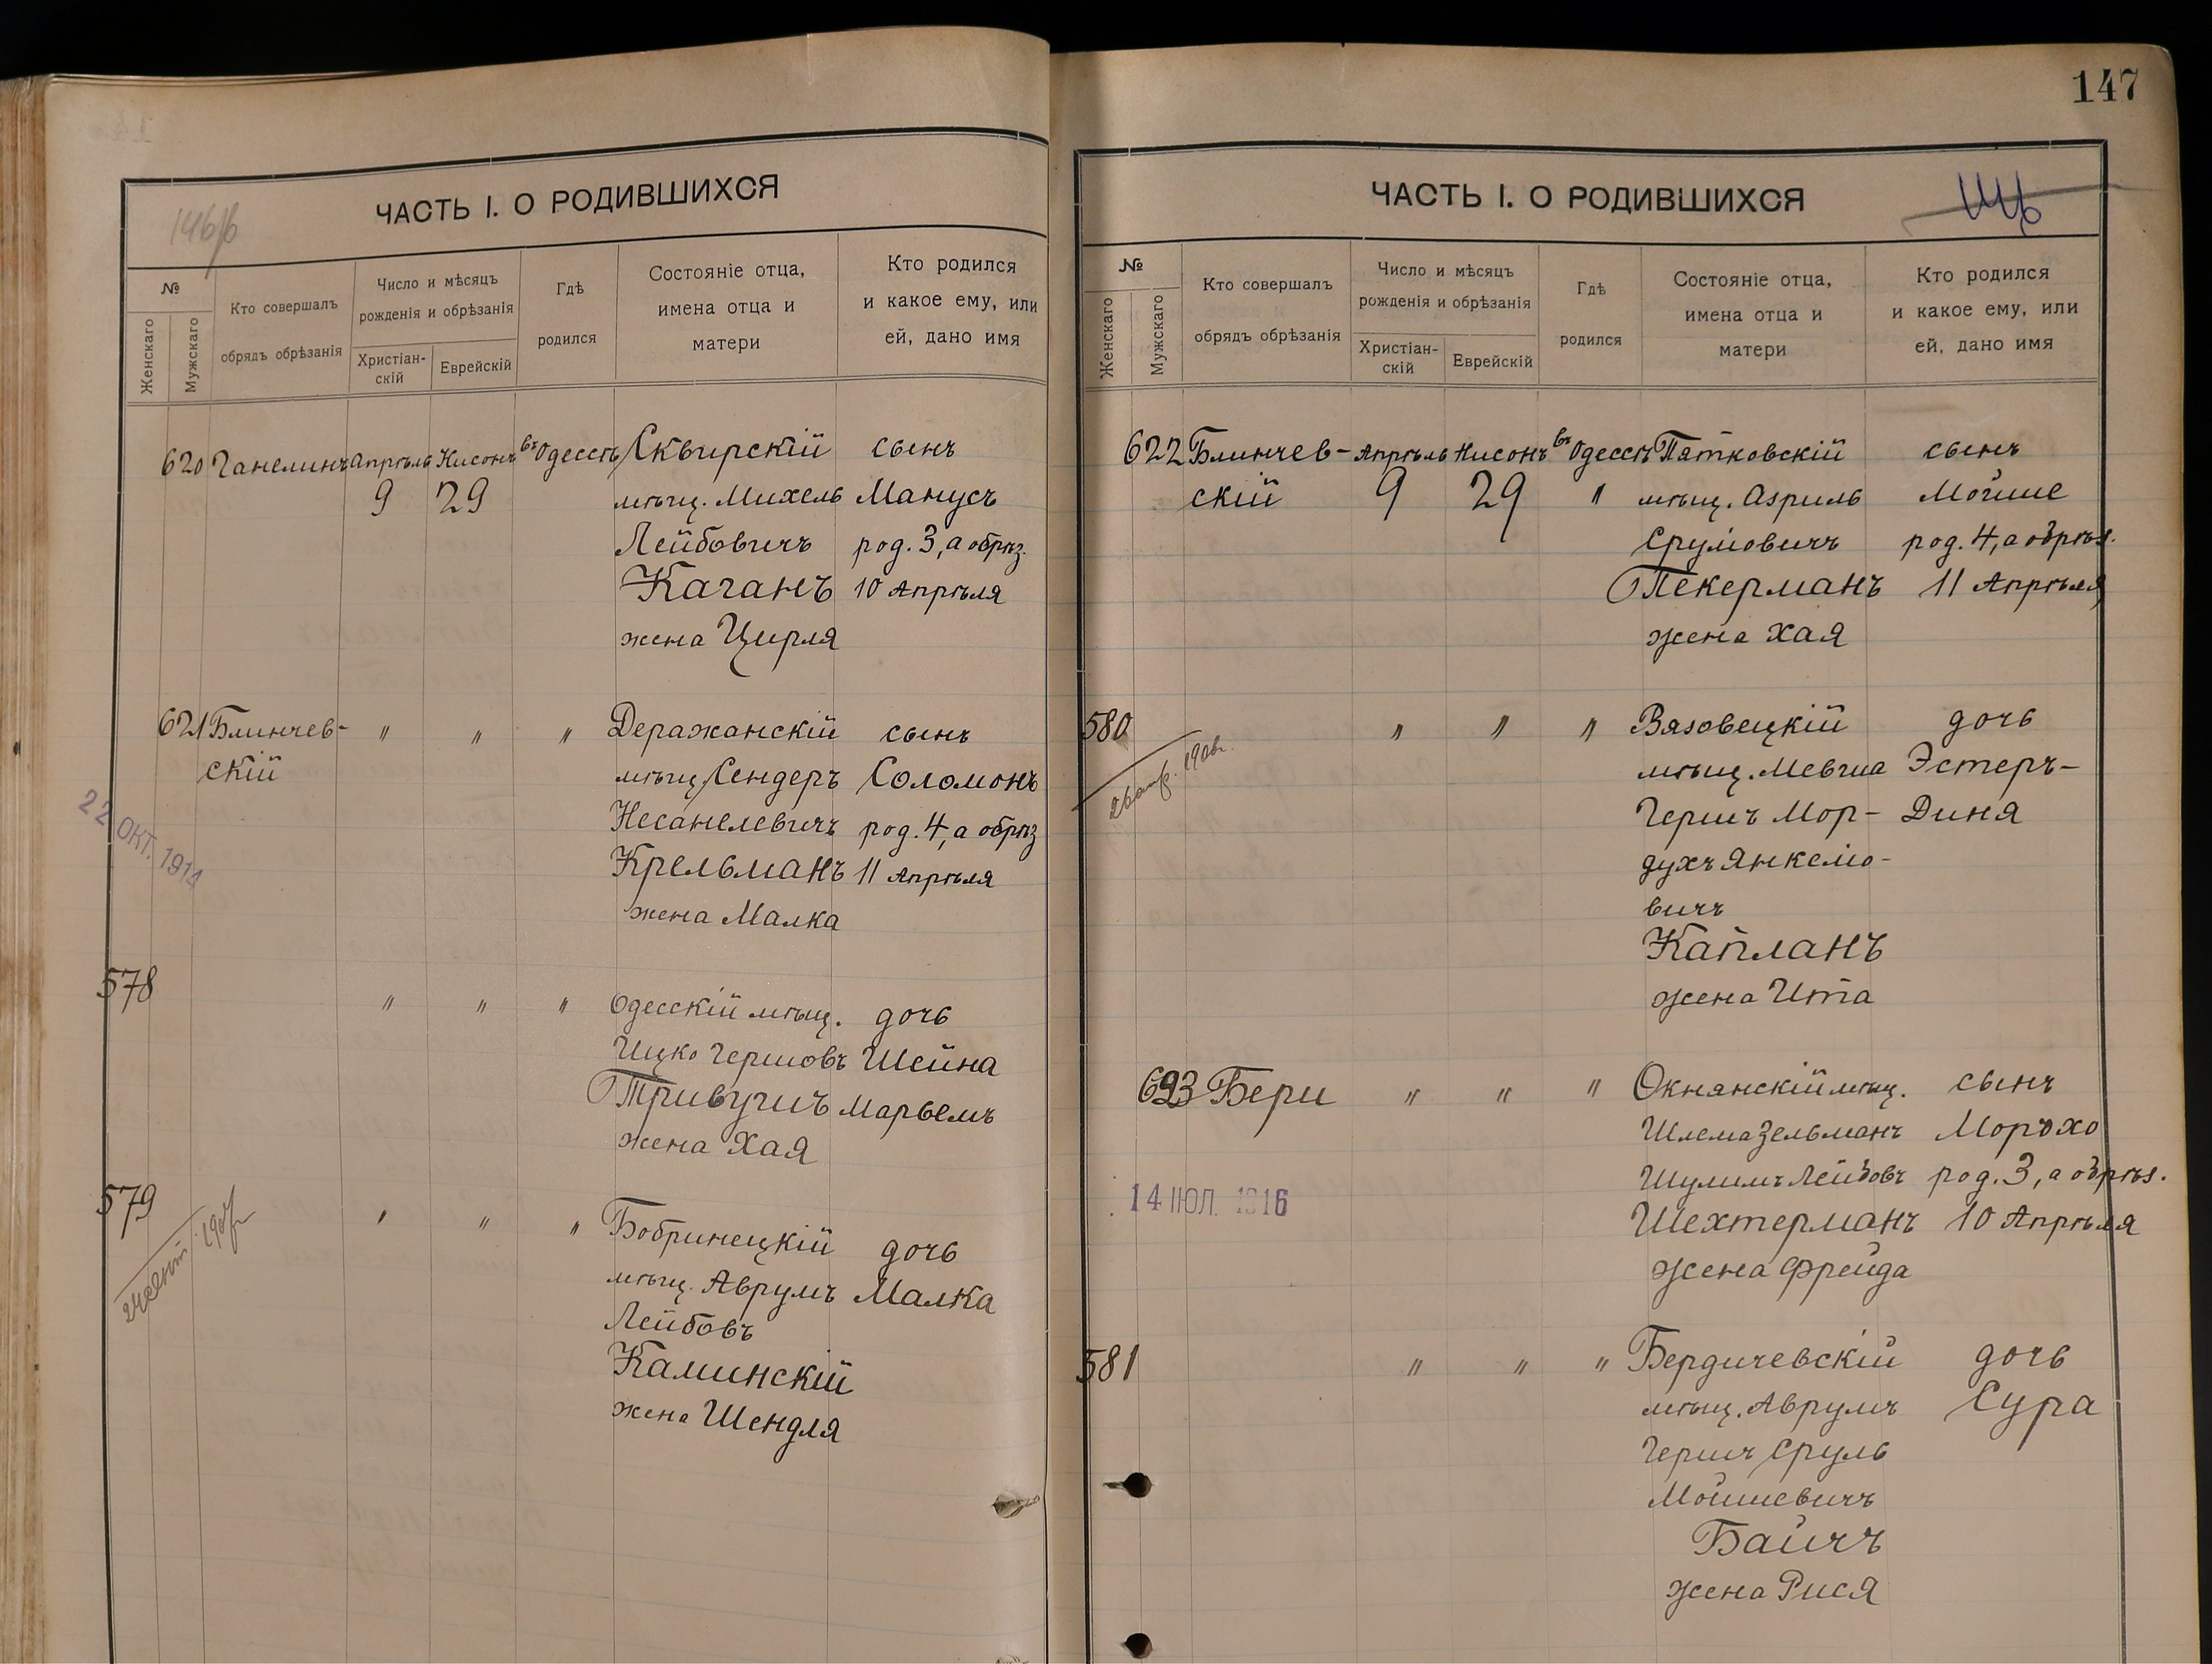 147
ЧАСТЬ I. О РОДИВШИХСЯ
146/б
№
Женскаго
Мужскаго
Кто совершалъ
обрядъ обрѣзанія
Число и мѣсяцъ
рожденія и обрѣзанія
Христіан-
скій
Еврейскій
Гдѣ
родился
Состояніе отца,
имена отца и
матери
Кто родился
и какое ему, или
ей, дано имя
620 Ганелинъ Апрѣль Нисонъ въ Одессѣ Сквирскій сынъ
9 29 мѣщ. Михель Манусъ
Лейбовичъ род. 3, а обрѣз.
Каганъ 10 Апрѣля
жена Цирля
621 Блинчев- " " " Деражанскій сынъ
скій мѣщ. Сендеръ Соломонъ
Несанелевичъ род. 4, а обрѣз
Крельманъ 11 Апрѣля
жена Малка
22 ОКТ. 1914
578 " " " Одесскій мѣщ. дочь
Ицко Гершовъ Шейна
Тривушъ Марьемъ
жена Хая
579 " " " Бобринецкій дочь
мѣщ. Аврумъ Малка
Лейбовъ
Каминскій
жена Шендля
ЧАСТЬ I. О РОДИВШИХСЯ
№
Женскаго
Мужскаго
Кто совершалъ
обрядъ обрѣзанія
Число и мѣсяцъ
рожденія и обрѣзанія
Христіан-
скій
Еврейскій
Гдѣ
родился
Состояніе отца,
имена отца и
матери
Кто родился
и какое ему, или
ей, дано имя
622 Блинчев- Апрѣль Нисонъ въ Одессѣ Пятковскій сынъ
скій 9 29 " мѣщ. Азриль Мойше
Срулiовичъ род. 4, а обрѣз.
Пекерманъ 11 Апрѣля
жена Хая
580 " " " Вязовецкій дочь
мѣщ. Мевша Эстеръ-
Гершъ Мор- Диня
духъ Янкеліо-
вичъ
Капланъ
жена Ита
623 Бери " " " Окнянскій мѣщ. сынъ
Шлема Зельманъ Мордхо
Шулимъ Лейбовъ род. 3, а обрѣз.
Шехтерманъ 10 Апрѣля
жена Фрейда
14 ІЮЛ. 1916
581 " " " Бердичевскій дочь
мѣщ. Аврумъ Сура
Гершъ Сруль
Мойшевичъ
Баичъ
жена Рися